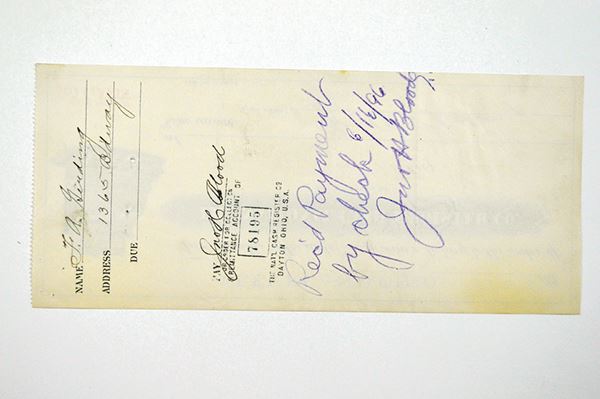 NAME T. R. Ginding
ADDRESS 1365 Bdway
DUE
PAY Jno H. Blood
OR ORDER FOR COLLECTION
REMITTANCE ACCOUNT OF
78195
THE NAT'L CASH REGISTER CO
DAYTON OHIO, U.S.A.
Rec'd Payment
by check 6/16/96
Jno H Blood